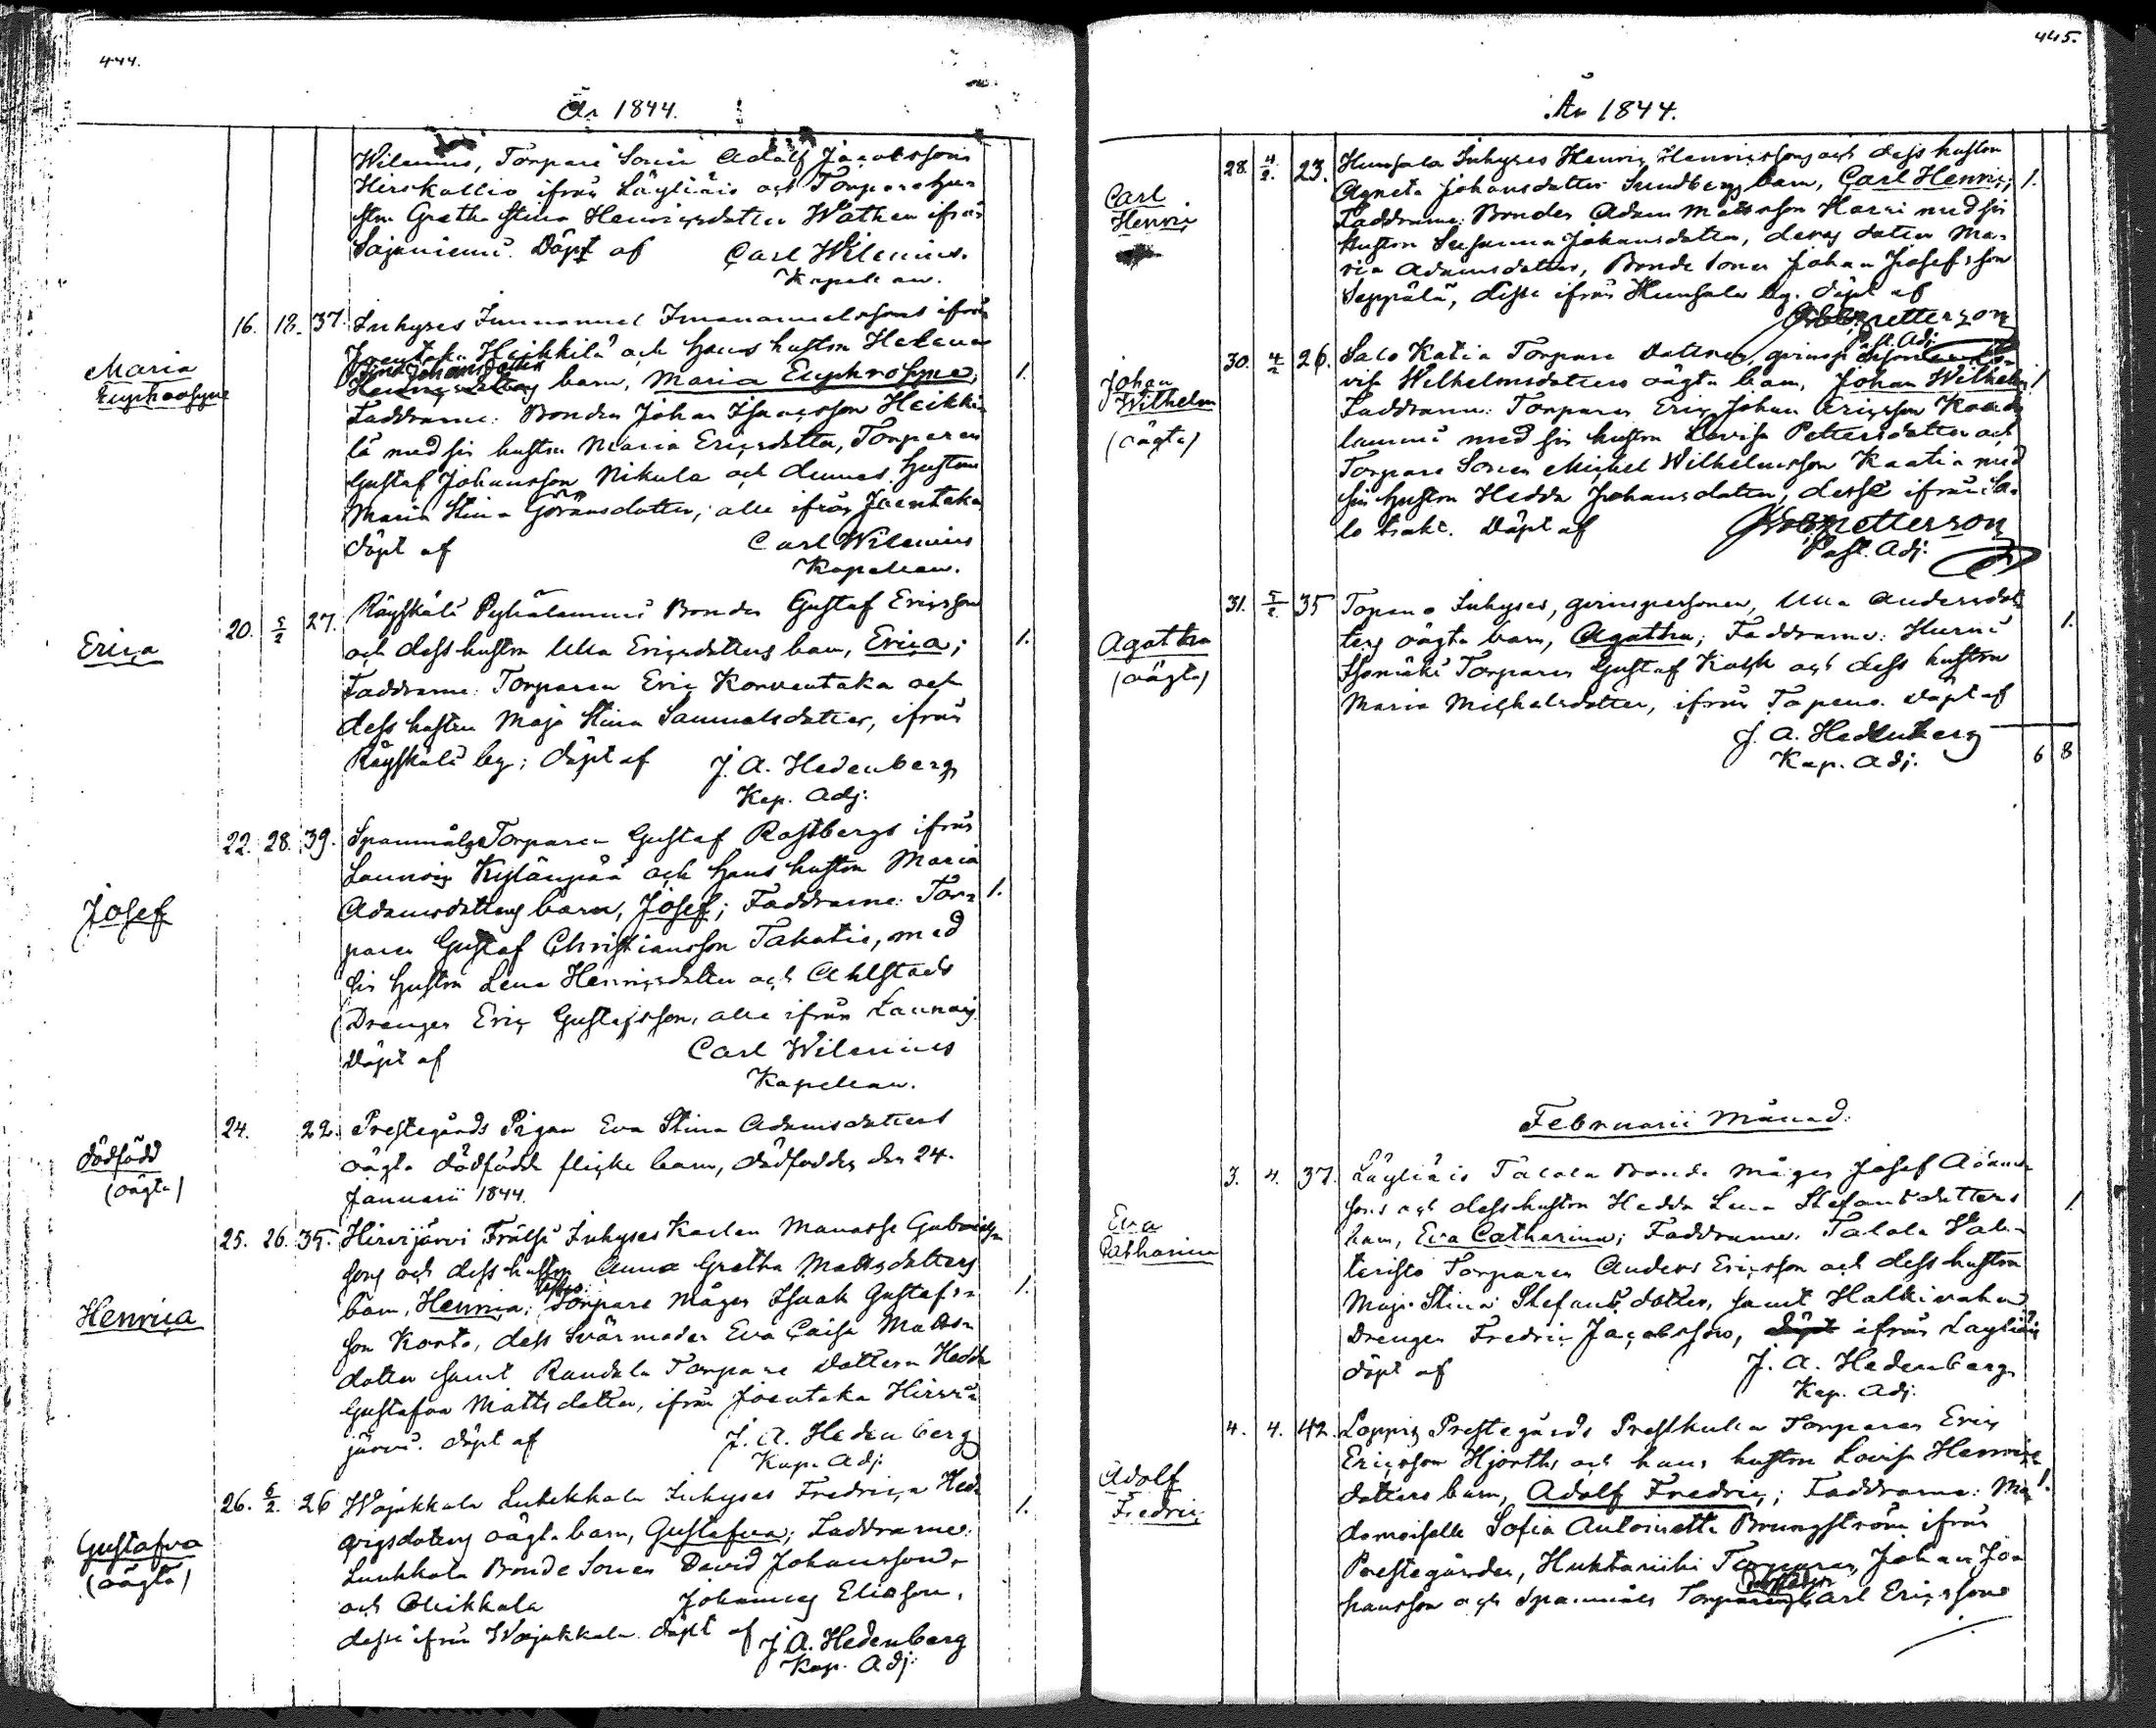 444.
År 1844.
Wilenius, Torpare Sonen Adolf Jacobssons
Hirskallio ifrån Läyliäis och Torpare hu-
strn Greta Stina Henricsdotter Wathen ifrån
Sajaniemi. Döpt af Carl Wilenius.
Kapellan.
Maria
Euphrosyne
16. 18. 37. Inhyses Immanuel Immanuelssons ifrån
Joentaka Heikkilä och hans hustru Helena
Stina Johansdotter
barn, Maria Euphrosyne; 1.
Faddrarne: Bonden Johan Isacsson Heikki-
lä med sin hustru Maria Ericsdotter, Torparen
Gustaf Johansson Nikula och dennes hustru
Maria Stina Göransdotter, alla ifrån Joentaka
döpt af Carl Wilenius
Kapellan.
Erica
20. 5/2 27. Räyskälä Pyhälammi Bonden Gustaf Ericsson
och dess hustru Ulla Ericsdotters barn, Erica; 1.
Faddrarne: Torparen Eric Korventaka och
dess hustru Maja Stina Samuelsdotter, ifrån
Räyskälä by; döpt af J. A. Hedenberg
Kap. Adj:
Josef
22. 28. 39. Spannmåls Torparen Gustaf Rostbergs ifrån
Launois Kylänpää och hans hustru Maria
Adamsdotters barn, Josef; Faddrarne: Tor- 1.
paren Gustaf Christiansson Takatie, med
sin hustru Lena Henricsdotter och Ahlstads
Drengen Eric Gustafsson, alla ifrån Launois
Döpt af Carl Wilenius
Kapellan.
dödfödd
(oägta)
24. 22. Prestegårds Pigan Eva Stina Adamsdotters
oägta dödfödda flicke barn, dödföddes den 24.
Januarii 1844.
Henrica
25. 26. 35. Hirvijärvi Frälse Inhyses Karlen Manasse Gabriels-
sons och dess hustru Anna Gretha Mattsdotters
barn, Henrica; Torpare Mågen Isaak Gustafs- 1.
son Korto, dess Svärmoder Eva Caisa Matts-
dotter samt Randala Torpare Dottern Hedda
Gustafva Mattsdotter, ifrån Joentaka Hirvi-
järvi. döpt af J. A. Hedenberg
Kap. Adj:
Gustafva
(oägta)
26. 6/2. 26 Wojakkala Inhyses Fredrica Hed-
vigsdotters oägta barn, Gustafva; Faddrarne: 1.
Luukkala Bonde Sonen David Johansson
och Ollikkala Johannes Eliasson,
desse ifrån Wojakkala. döpt af J. A. Hedenberg
Kap. Adj:
445.
År 1844.
Carl
Henric
28. 4/2. 23. Hunsala Inhyses Henric Henricssons och dess hustru
Agneta Johansdotter Sundbergs barn, Carl Henric; 1.
Faddrarne: Bonden Adam Mattsson Harri med sin
hustru Susanna Johansdotter, deras dotter Ma-
ria Adamsdotter, Bonde Sonen Johan Josefsson
Seppälä, desse ifrån Hunsala by. döpt af
Petterson
P. Adj:
Johan
Wilhelm
(oägta)
30. 4/2 26. Salo Katia Torpare Dottren, qvinspersonen Lo-
visa Wilhelmsdotters oägta barn, Johan Wilhelm 1
Faddrarne: Torparen Eric Johan Ericsson
lammi med sin hustru Lovisa Pettersdotter och
Torpare Sonen Michel Wilhelmsson Kaatia med
sin hustru Hedda Johansdotter, desse ifrån Sa-
lo trakt. Döpt af Petterson
Past. Adj:
Agatha
(oägta)
31. 5/2. 35 Topeno Inhyses, qvinspersonen, Ulla Andersdot-
ters oägta barn, Agatha; Faddrarne: Hurni 1.
Isomäki Torparen Gustaf Kask och dess hustru
Maria Michelsdotter, ifrån Topeno. Döpt af
J. A. Hedenberg
Kap. Adj: 6 8
Februarii Månad.
Eva
Catharina
3. 4. 37. Läyliäis Talola Bonde Mågen Josef Adams-
sons och dess hustru Hedda Lena Stefansdotters 1.
barn, Eva Catharina; Faddrarne: Talola Val-
teristo Torparen Anders Ericsson och dess hustru
Maja Stina Stefansdotter, samt
Drengen Fredric Jacobsson, ifrån Läyliäis
döpt af J. A. Hedenberg
Kap. Adj:
Adolf
Fredric
4. 4. 42. Loppis Prestegårds Prestkulla Torparen Eric
Ericsson Hjorths och hans hustru Lovisa Henrics-
dotters barn, Adolf Fredric; Faddrarne: Ma- 1.
demoiselle Sofia Antoinetta Brungström ifrån
Prestegården, Huhtariihi Torparen Johan Jo-
hansson och Spannmåls Carl Ericsson